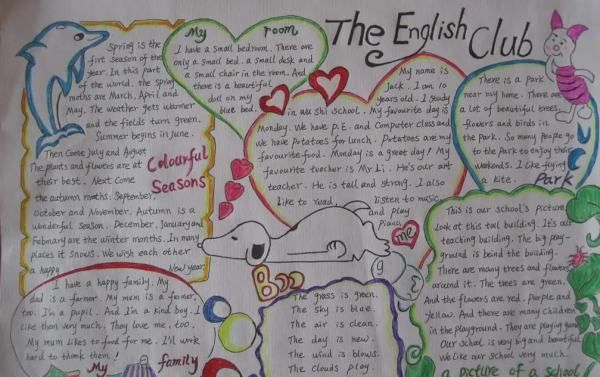 The English Club
Spring is the
first season of the
year. In this part
of the world. the spring
moths are March, April and
May. The weather gets warmer
and the fields turn green.
Summer begins in June.
Then come July and August
The plants and flowers are at
their best. Next come
the autumn moths: September,
October and November. Autumn is a
wonderful season. December, January and
February are the winter months. In many
places it snows. We wish each other
a happy New year.
Colourful
Seasons
My room
I have a small bedroom. There are
only a small bed. a small desk and
a small chair in the room. And
there is a beautiful
doll on my
blue bed.
My name is
Jack. I am 10
years old. I study
in wu shi school. My favourite day is
Monday. We have P.E. and Computer class and
we have potatoes for lunch. Potatoes are my
favourite food. Monday is a great day! My
favourite teacher is Mr Li. He's our art
teacher. He is tall and strong. I also
like to read, listen to music
and play
piano.
me
There is a park
near my home. There are
a lot of beautiful trees,
flowers and birds in
the park. So many people go
to the Park to enjoy their
weekends. I like flying
a kite.
Park
I have a happy family. My
dad is a farmer. My mum is a farmer,
too. I'm a pupil. And I'm a kind boy. I
like them very much. They love me, too.
My mum likes to food for me. I'll work
hard to thank them!
My family
The grass is green.
The sky is blue.
The air is clean.
The day is new.
The wind is blows.
The clouds play.
This is our school's picture
Look at this tall building. It's our
teaching building. The big play-
ground is beind the building.
There are many trees and flowers
around it. The trees are green.
And the flowers are red, Purple and
yellow. And there are many children
in the playground. They are playing games
Our school is very big and beautiful
We like our school very much.
a picture of a school